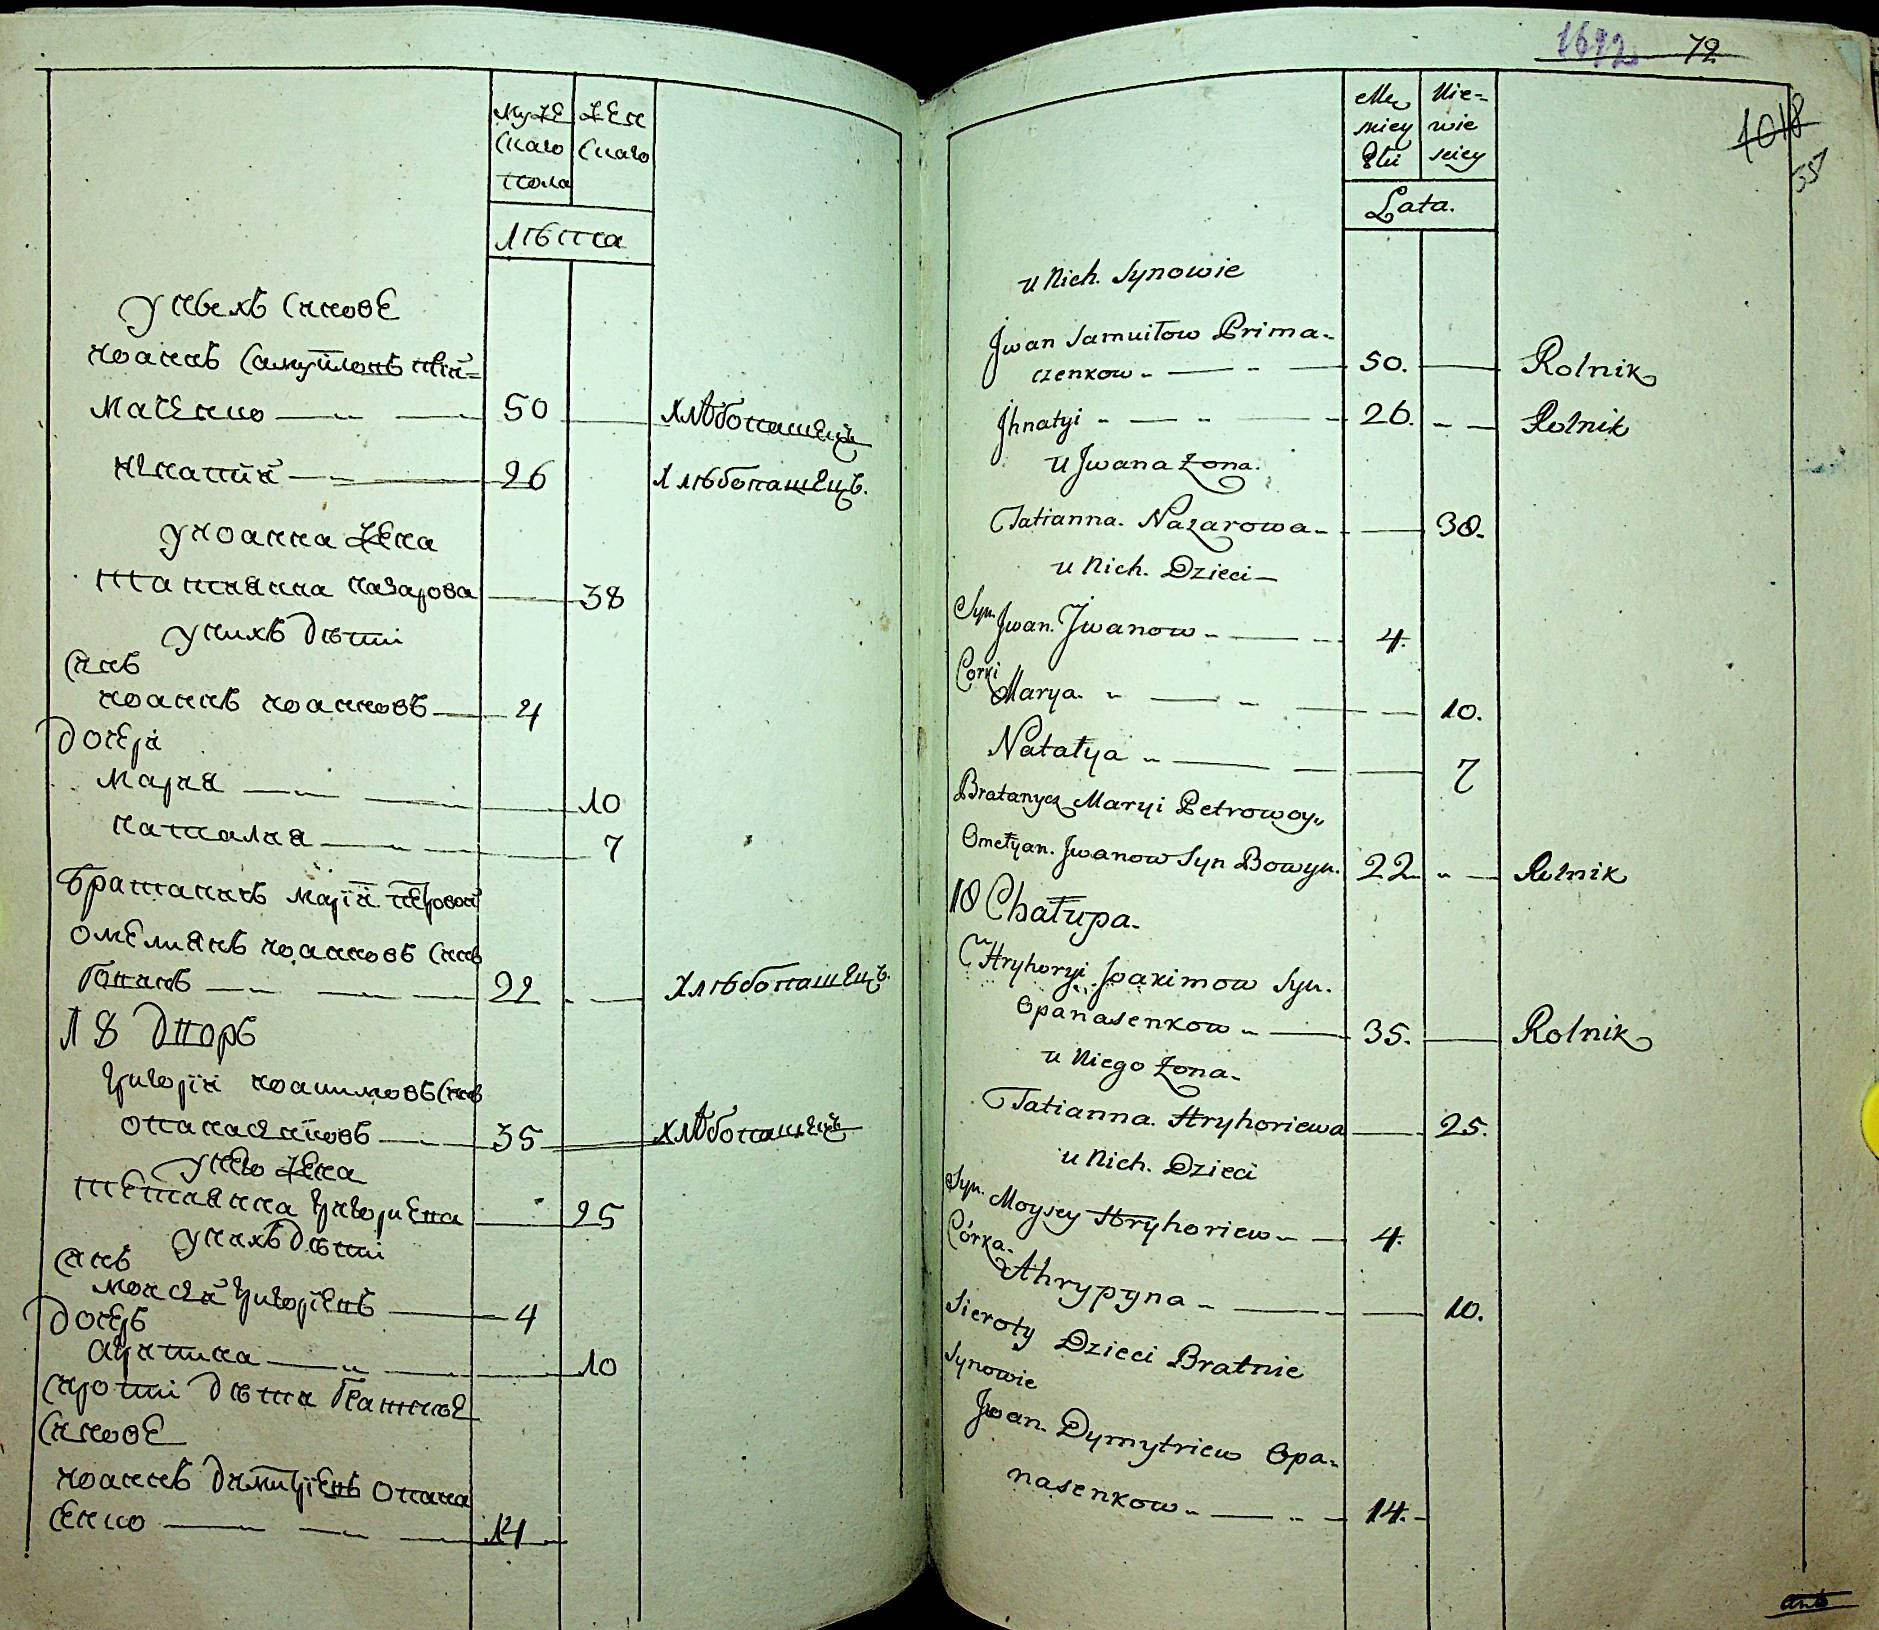 муже
скаго
пола
жен
скаго
лѣта
у нихъ синове
иоаннъ самуйловъ прий=
маченко 50 хлѣбопашецъ
игнатий 26 хлѣбопашецъ.
у иоанна жена
татианна назарова 38
у нихъ дѣти
синъ
иоаннъ иоанновъ 4
дочери
мария 10
наталия 7
братаничъ марїи петровой
омелианъ иоанновъ синъ
бовинъ 22 хлѣбопашецъ.
18 дворъ
григорїй иоакимовъ синъ
опанасенковъ 35 хлѣбопашецъ
у него жена
татианна григориева 25
у нихъ дѣти
синъ
моисей григорїевъ 4
дочерь
10
сироти дѣти братние
синове
иоаннъ димитрїевъ опана
сенко 14
1692 72
1018
55
Męz
skiey
Płci
Nie-
wie
sciey
Lata.
u Nich. Synowie
Jwan Samuiłow Prima-
czenkow 50. Rolnik
Jhnatyi 26. Rolnik
u Jwana Żona.
Tatianna. Nazarowa 38.
u Nich. Dzieci
Syn. Jwan. Jwanow 4.
Corki
Marya. 10.
Natałya 7
Bratanycz Maryi Petrowoy
Omełyan. Jwanow Syn Bowyn. 22 Rolnik
18 Chałupa.
Hryhoryi Joakimow Syn.
Opanasenkow 35. Rolnik
u Niego Żona
Tatianna. Hryhoriewa 25.
u Nich. Dzieci
Syn. Moysey Hryhoriew 4.
Córka.
Ahrypyna 10.
Sieroty Dzieci Bratnie
Synowie
Jwan. Dymytriew Opa-
nasenkow 14.